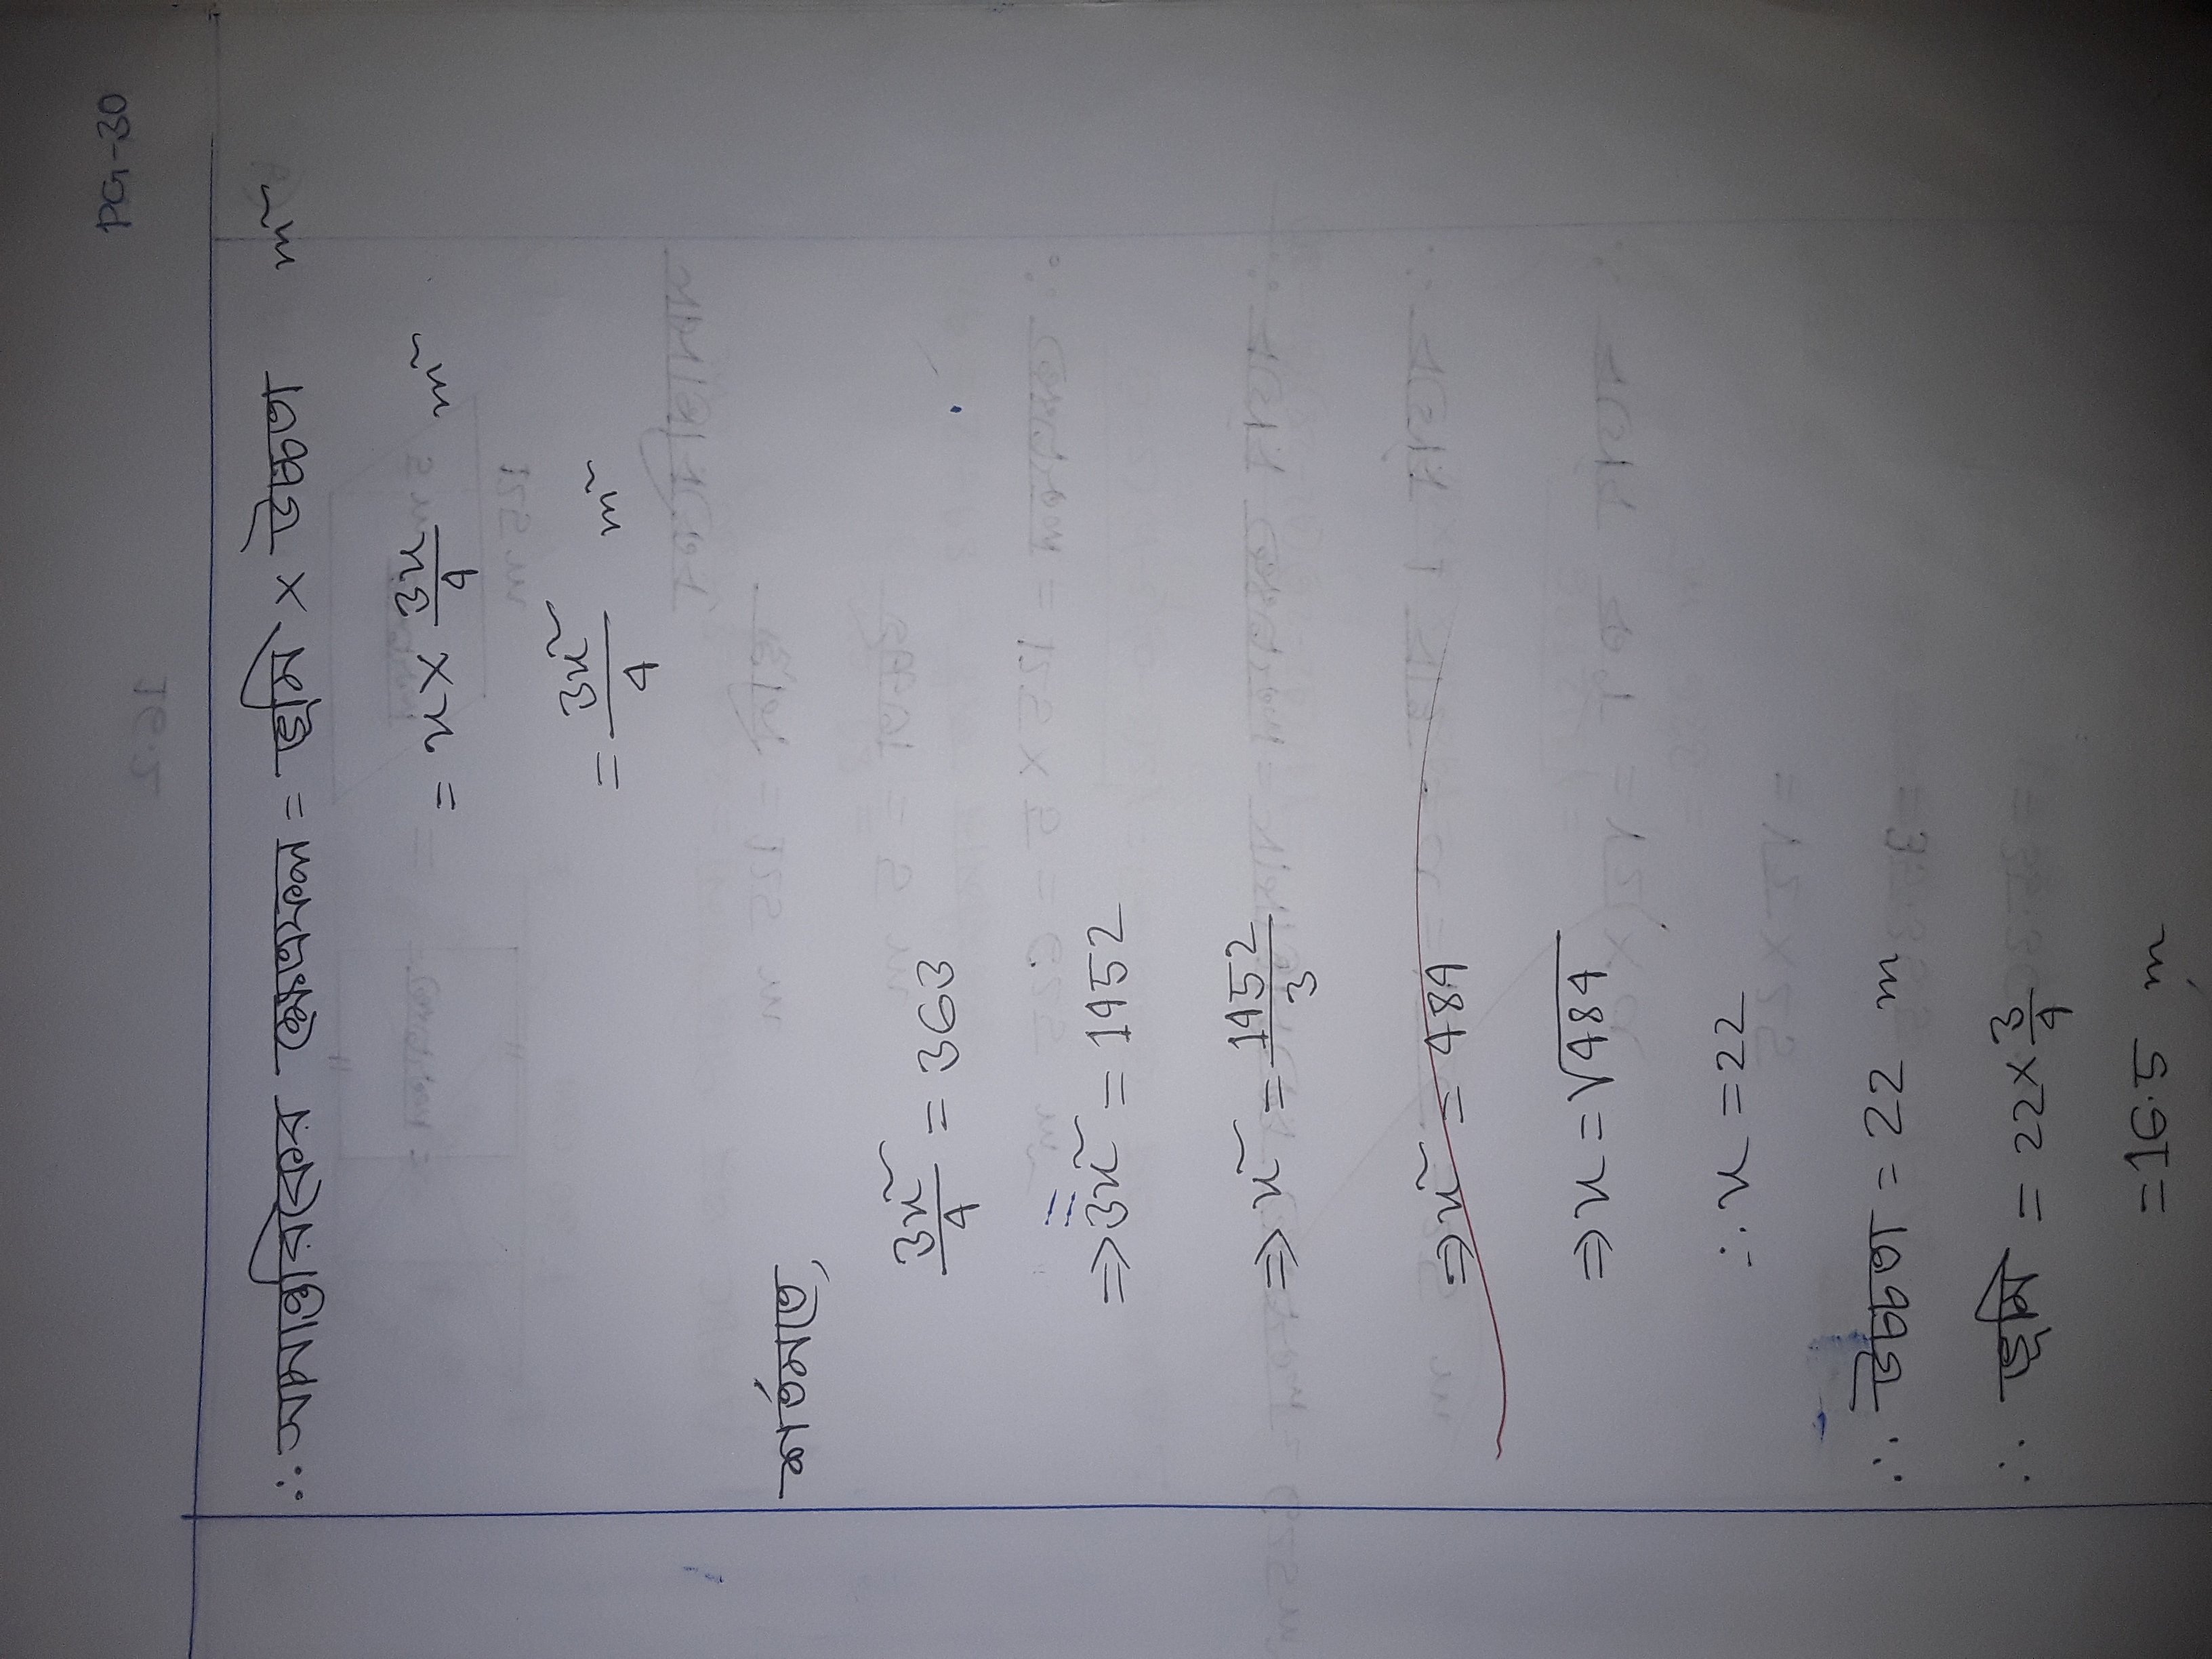 PG-30
∴ সামান্তরিকের ক্ষেত্রফল = ভূমি × উচ্চতা m²
= x × 3x/4 m²
= 3x²/4 m²
শর্তমতে,
3x²/4 = 363
⇒ 3x² = 1452
⇒ x² = 1452/3
⇒ x² = 484
⇒ x = √484
∴ x = 22
∴ উচ্চতা = 22 m
∴ ভূমি = 22 × 3/4
= 16.5 m